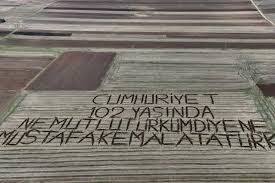 CUMHURİYET
102 YAŞINDA
NE MUTLU TÜRKÜM DİYENE
MUSTAFA KEMAL ATATÜRK